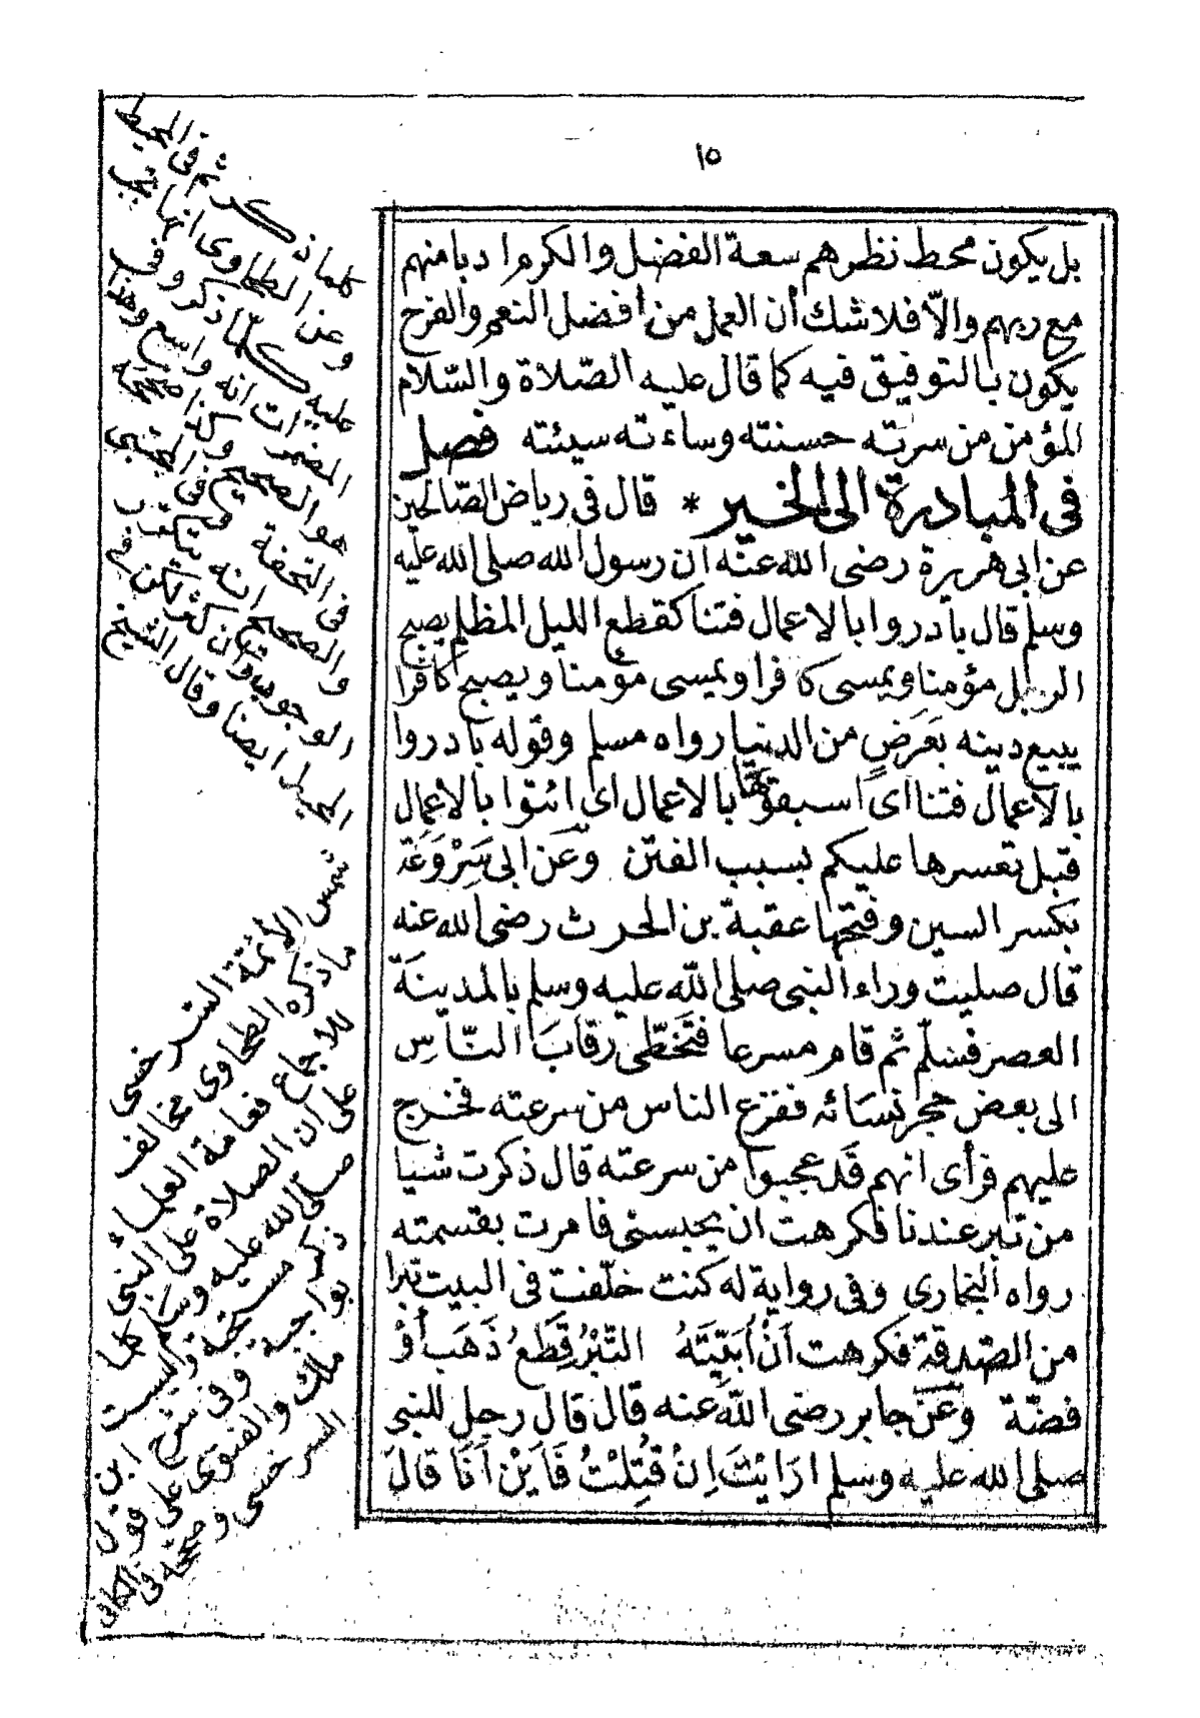 ١٥
بل يكون محط نظرهم سعة الفضل والكرم ادبا منهم
مع ربهم والّا فلا شك أن العمل من أفضل النعم والفرح
يكون بالتوفيق فيه كما قال عليه الصّلاة والسّلام
المؤمن من سرته حسنته وساءته سيئته فصل
فى المبادرة الى الخير * قال فى رياض الصّالحين
عن ابى هريرة رضى الله عنه ان رسول الله صلى الله عليه
وسلم قال بادروا بالاعمال فتنا كقطع الليل المظلم يصبح
الرجل مؤمنا ويمسى كافرا ويمسى مؤمنا ويصبح كافرا
يبيع دينه بعَرَضٍ من الدنيا رواه مسلم وقوله بادروا
بالأعمال فتنا اى اسبقوها بالاعمال اى ائتوا بالأعمال
قبل تعسرها عليكم بسبب الفتن وعَن ابى سَِرْوَعَة
بكسر السين وفتحها عقبة بن الحرث رضى الله عنه
قال صليت وراء النبى صلى الله عليه وسلم بالمدينَة
العصر فسَلّم ثم قام مسرعا فتَخَطّى رقابَ النّاسِ
الى بعض حجر نسَائه ففزع الناس من سرعته فخرج
عليهم فرأى انهم قَد عجبوا من سرعته قال ذكرت شيا
من تبر عندنا فكرهت ان يحبسنى فامرت بقسمته
رواه البخارى وفى رواية له كنت خلّفت فى البيت تبرا
من الصّدقة فكرهت اَنْ اُبَيِّتَهُ التِّبْرُ قِطَعُ ذَهَب أوْ
فضّة وعَن جابر رضى الله عنه قال قال رجل للنبى
صلى الله عليه وسلم ارَايْتَ اِنْ قُتِلْتُ فَاَيْنَ اَنَا قالَ
كلما ذكر ثم فى المحيط
وعن الطحاوى انها تجب
عليه كلما ذكر وفى
المضمرات انه واسع وهذا
هو الصحيح وكذا صححه
فى التحفة وفى المجتبى
والصحيح انه يتكرر
الوجوب وان كثر لكن
الحبل ايضا وقال الشيخ
شمس الأئمّة السّرخسى
ماذكره الطحاوى مخالف
للاجماع فعامة العلماء
على ان الصلاة على النبى
صلى الله عليه وسلم كلما
ذكر مستحبة وليست
بواجبة وفى شرح ابن
ملك والفتوى على قول
السرخسى وصححه فى الكافى